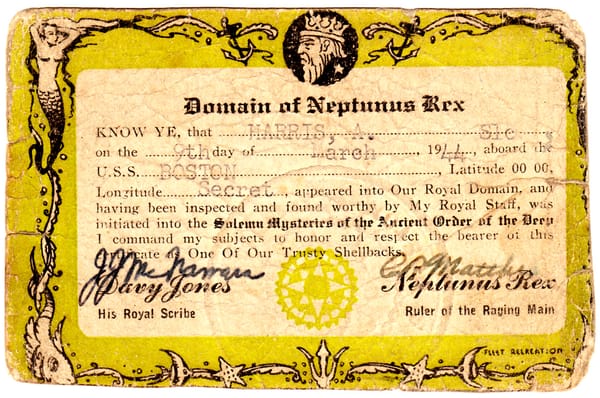 Domain of Neptunus Rex
KNOW YE, that HARRIS, A. S1c ,
on the 9th day of March , 1944, aboard the
U.S.S. BOSTON , Latitude 00 00,
Longitude Secret , appeared into Our Royal Domain, and
having been inspected and found worthy by My Royal Staff, was
initiated into the Solemn Mysteries of the Ancient Order of the Deep
I command my subjects to honor and respect the bearer of this
certificate as One Of Our Trusty Shellbacks.
Davy Jones Neptunus Rex
His Royal Scribe Ruler of the Raging Main
FLEET RECREATION